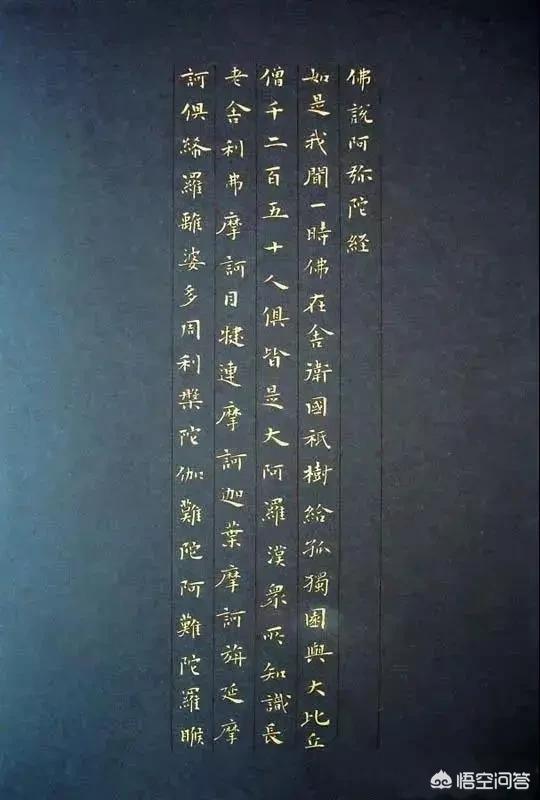 佛說阿弥陀経
如是我聞一時佛在舎衛國祇樹給孤獨園與大比丘
僧千二百五十人俱皆是大阿羅漢衆所知識長
老舎利弗摩訶目犍連摩訶迦葉摩訶旃延摩
訶俱絺羅離婆多周利槃陀伽難陀阿難陀羅睺
悟空问答